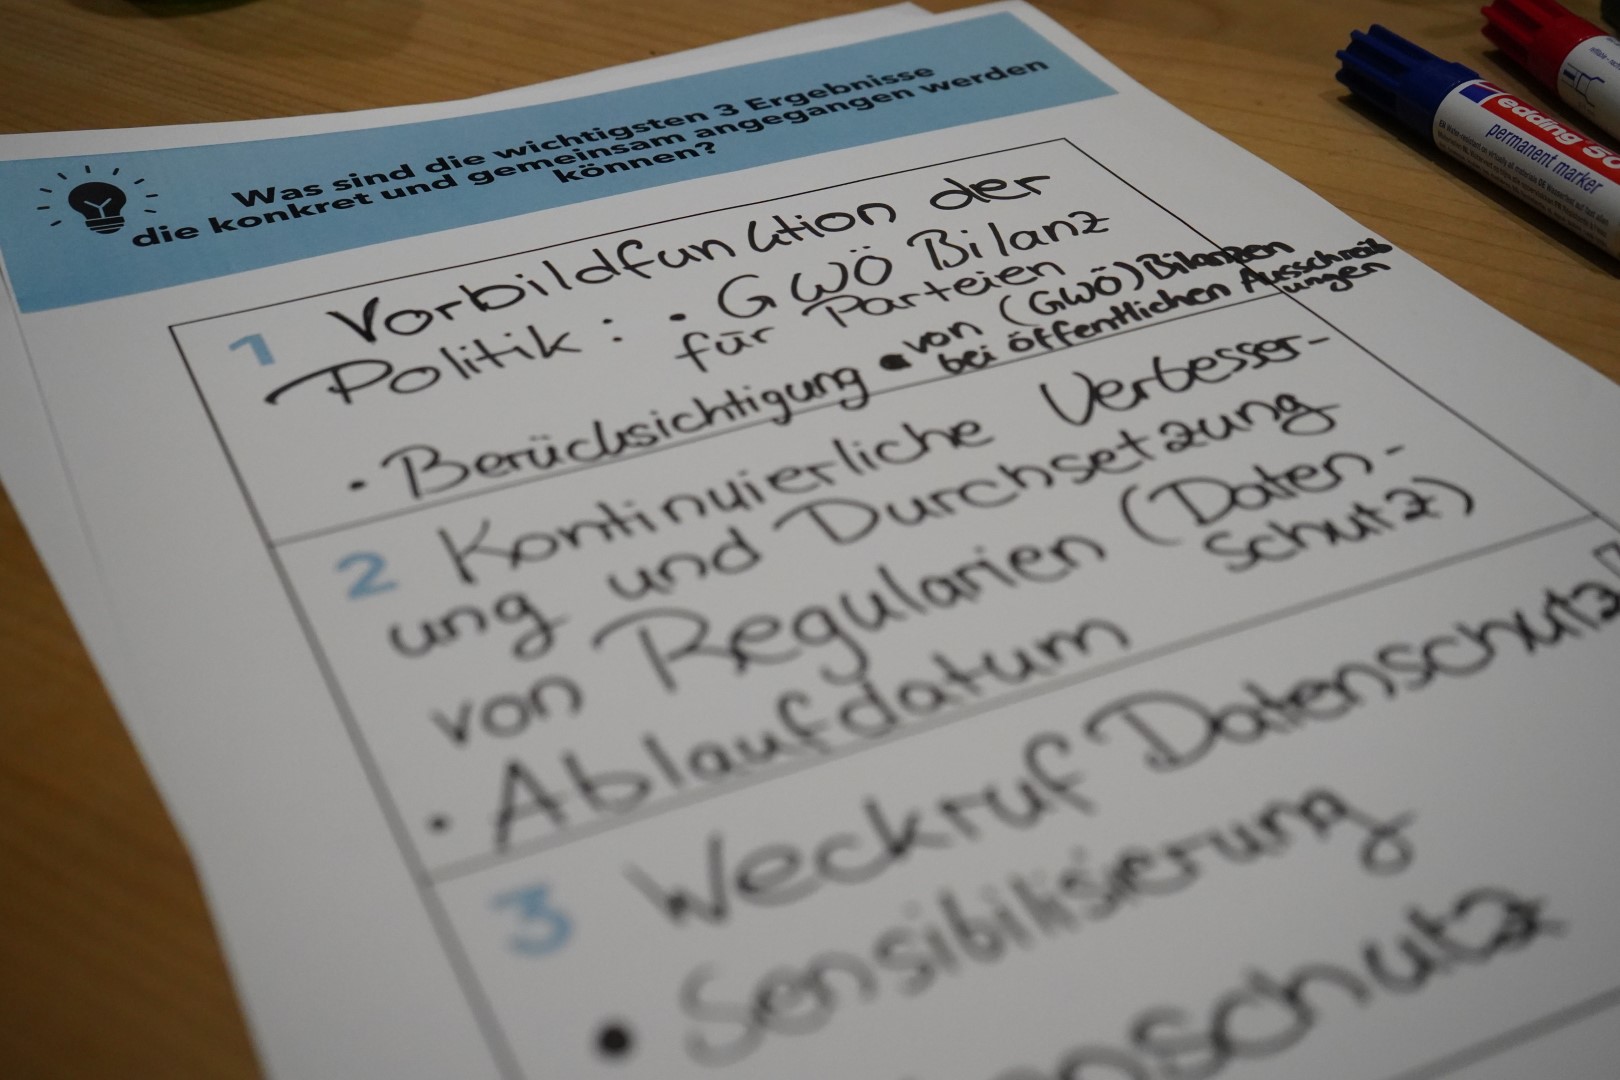 Was sind die wichtigsten 3 Ergebnisse
die konkret und gemeinsam angegangen werden
können?
1 Vorbildfunktion der
Politik: • GWÖ Bilanz
für Parteien
• Berücksichtigung • von (GWÖ) Bilanzen
bei öffentlichen Ausschreib
ungen
2 Kontinuierliche Verbesser-
ung und Durchsetzung
von Regularien (Daten-
schutz)
• Ablaufdatum
3 Weckruf Datenschutz
• Sensibilisierung
nschutz
edding
permanent marker